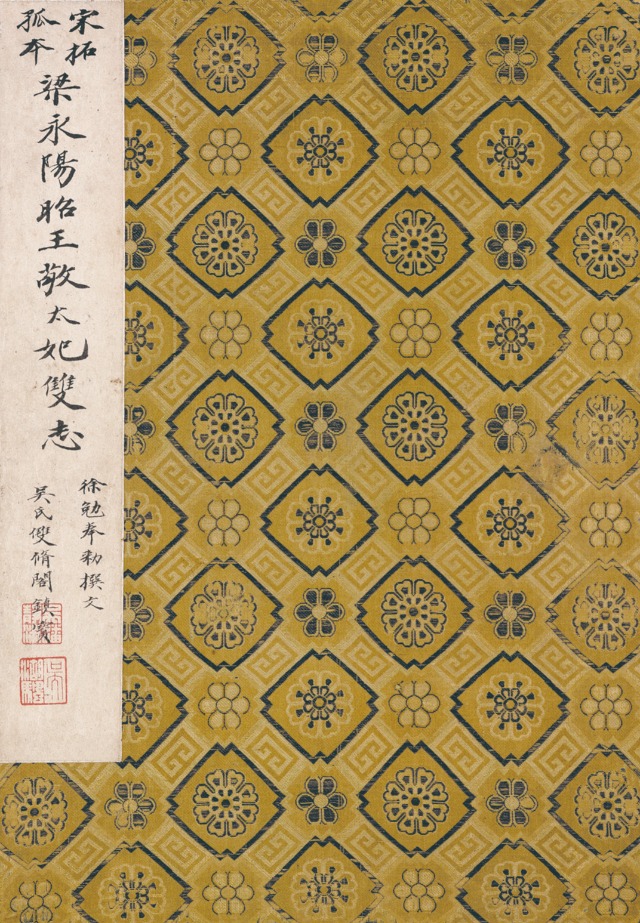 宋拓
孤本
梁永陽昭王敬太妃雙志
徐勉奉勅撰文
吳氏雙脩閣鎮寶